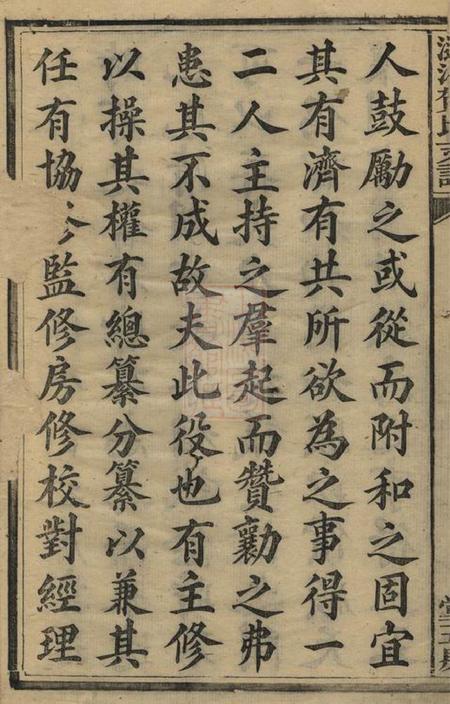 人鼓勵之或從而附和之固宜
其有濟有共所欲為之事得一
二人主持之羣起而贊勷之弗
患其不成故夫此役也有主修
以操其權有總纂分纂以兼其
任有協修監修房修校對經理